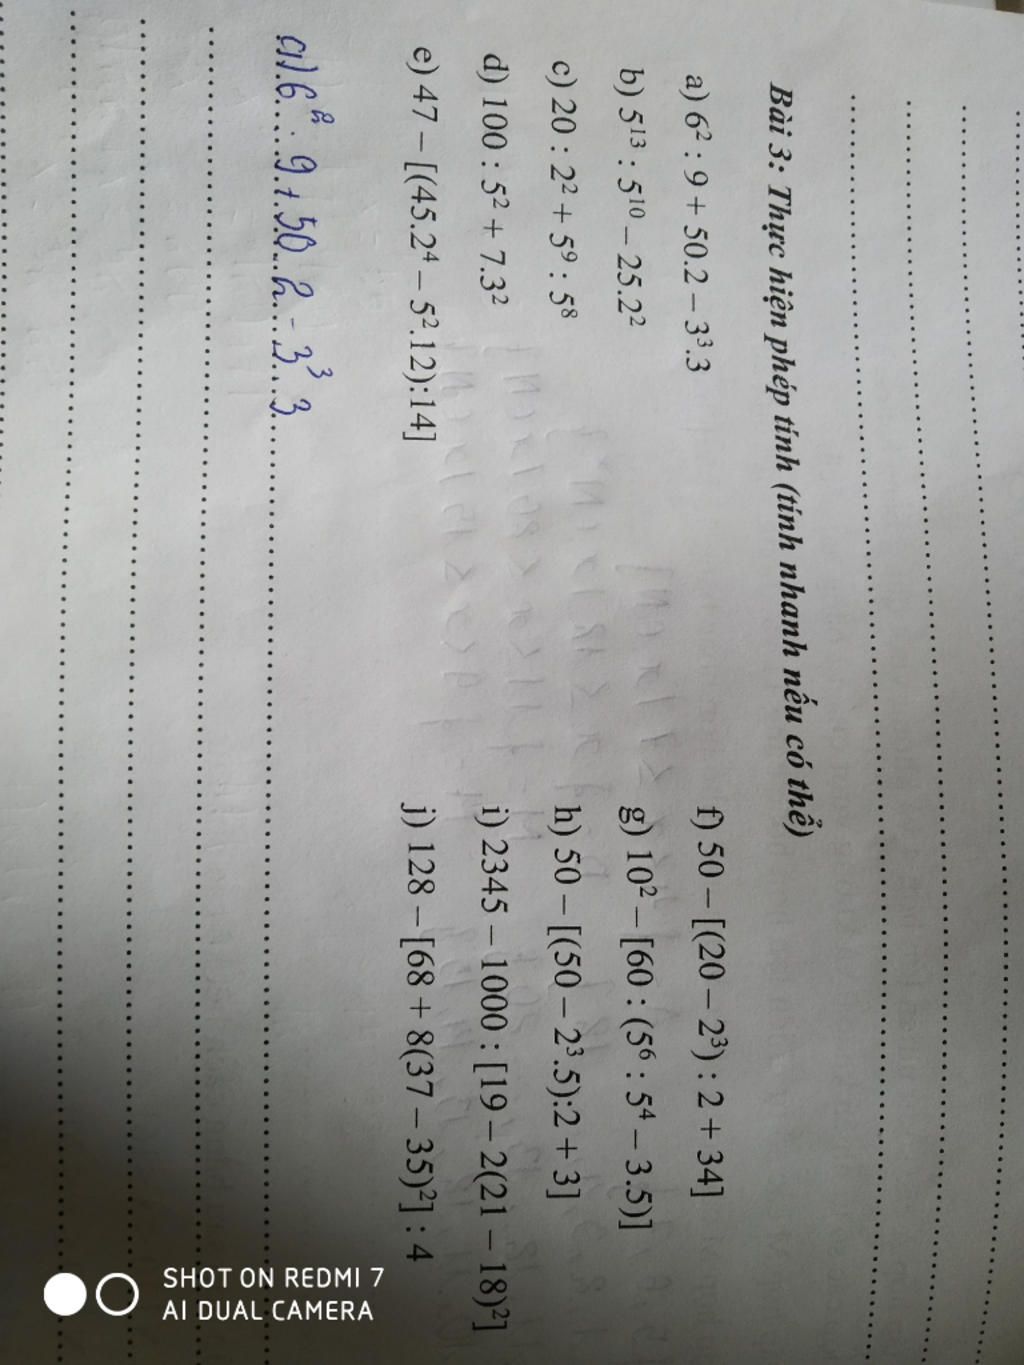 Bài 3: Thực hiện phép tính (tính nhanh nếu có thể)
a) 6² : 9 + 50.2 – 3³.3
b) 5¹³ : 5¹⁰ – 25.2²
c) 20 : 2² + 5⁹ : 5⁸
d) 100 : 5² + 7.3²
e) 47 – [(45.2⁴ – 5².12):14]
f) 50 – [(20 – 2³) : 2 + 34]
g) 10² – [60 : (5⁶ : 5⁴ – 3.5)]
h) 50 – [(50 – 2³.5):2 + 3]
i) 2345 – 1000 : [19 – 2(21 – 18)²]
j) 128 – [68 + 8(37 – 35)²] : 4
a) 6² : 9 + 50 . 2 - 3³ . 3
SHOT ON REDMI 7
AI DUAL CAMERA